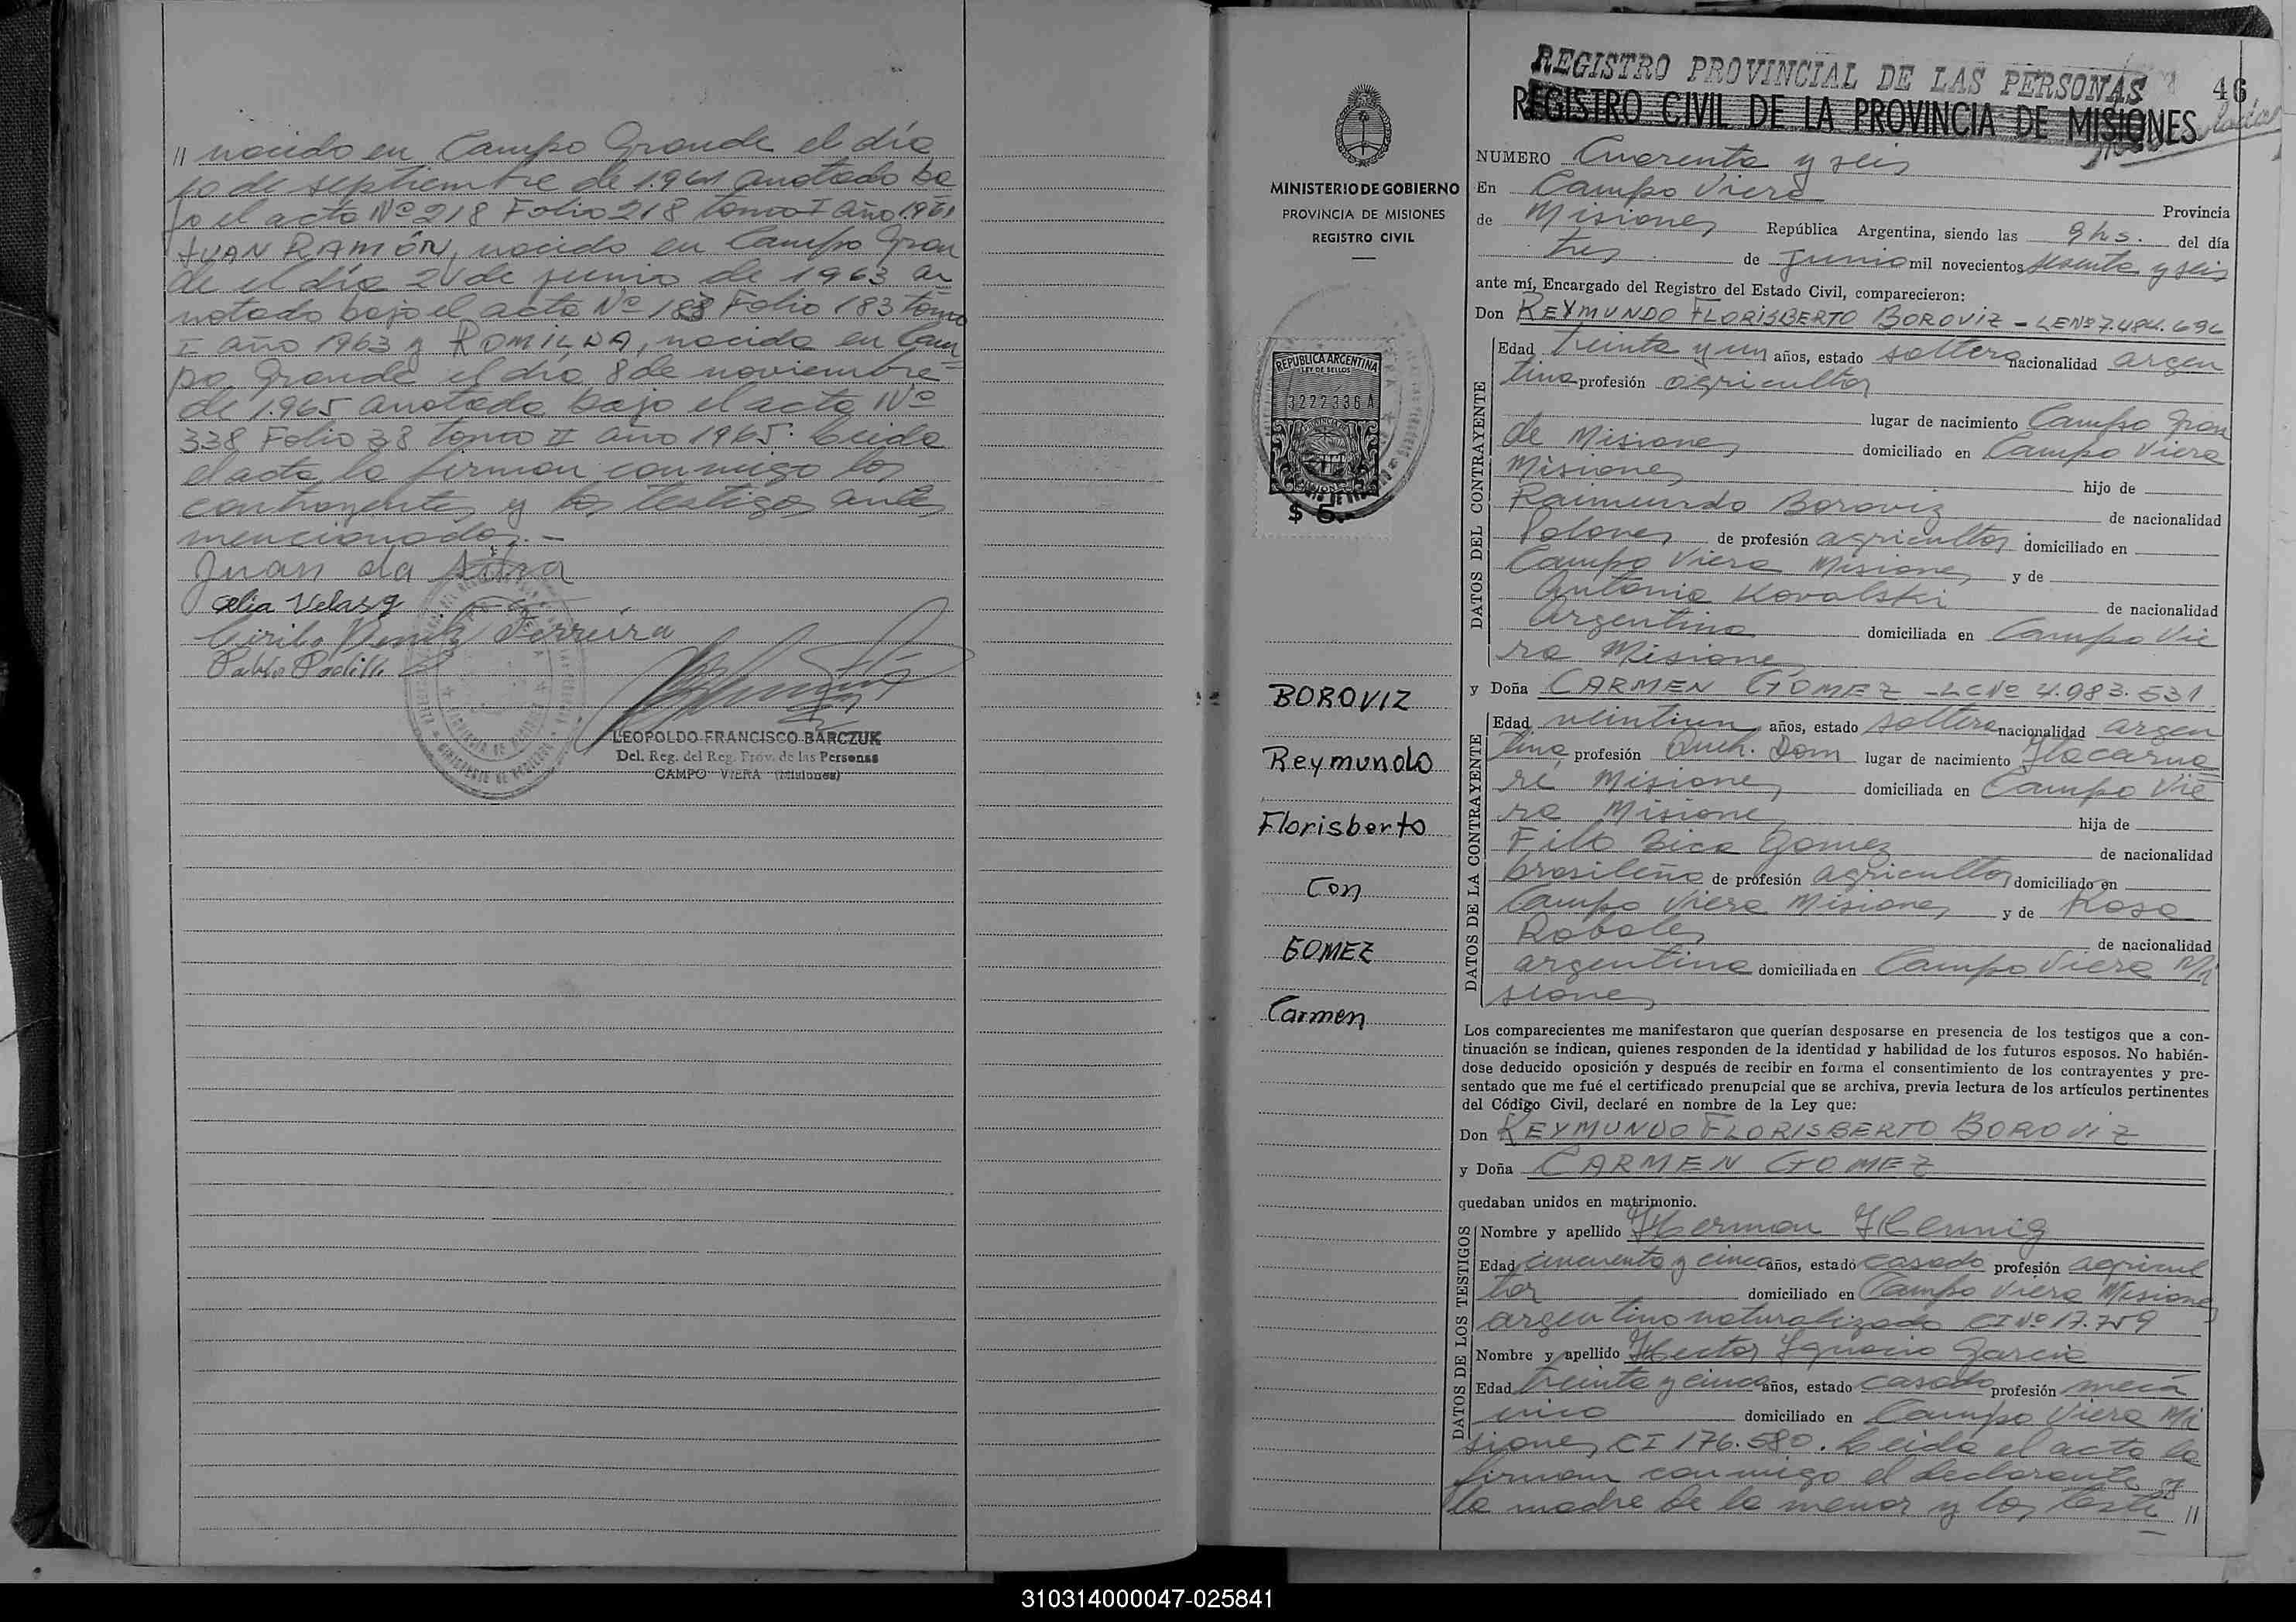 // nacido en Campo Grande el día
10 de septiembre de 1.961 anotado ba
jo el acta Nº 218 Folio 218 tomo I año 1961
JUAN RAMÓN, nacido en Campo Gran
de el día 20 de junio de 1963 a
notado bajo el acta Nº 183 Folio 183 tomo
I año 1963 y ROMILDA, nacida en Cam
po Grande el día 8 de noviembre
de 1.965 anotada bajo el acta Nº
338 Folio 38 tomo II año 1965. Leída
el acta la firman conmigo los
contrayentes y los testigos antes
mencionados.-
Juan da Silva
Celia Velasq
Cirilo Ferreira
Pablo Padilla
LEOPOLDO FRANCISCO BARCZUK
Del. Reg. del Reg. Prov. de las Personas
CAMPO VIERA (Misiones)
MINISTERIO DE GOBIERNO
PROVINCIA DE MISIONES
REGISTRO CIVIL
REPUBLICA ARGENTINA
LEY DE SELLOS
3222336 A
$ 5.-
BOROVIZ
Reymundo
Florisberto
Con
GOMEZ
Carmen
REGISTRO PROVINCIAL DE LAS PERSONAS
46
REGISTRO CIVIL DE LA PROVINCIA DE MISIONES
NUMERO Cuarenta y seis
En Campo Viera Provincia
de Misiones República Argentina, siendo las 9 hs. del día
tres de Junio mil novecientos sesenta y seis
ante mí, Encargado del Registro del Estado Civil, comparecieron:
Don REYMUNDO FLORISBERTO BOROVIZ - LE Nº 7.484.696
DATOS DEL CONTRAYENTE
Edad treinta y un años, estado soltero nacionalidad argen
tina profesión agricultor
lugar de nacimiento Campo Gran
de Misiones domiciliado en Campo Viera
Misiones hijo de
Raimundo Boroviz de nacionalidad
Polones de profesión agricultor domiciliado en
Campo Viera Misiones y de
Antonia Kovalski de nacionalidad
Argentina domiciliada en Campo Vie
ra Misiones
y Doña CARMEN GOMEZ - LC Nº 4.983.531
DATOS DE LA CONTRAYENTE
Edad veintiun años, estado soltera nacionalidad argen
tina profesión Queh. Dom lugar de nacimiento Itacarua
ré Misiones domiciliada en Campo Vie
ra Misiones hija de
Filo Bica Gomez de nacionalidad
brasileña de profesión agricultor domiciliado en
Campo Viera Misiones y de Rosa
Robales de nacionalidad
argentina domiciliada en Campo Viera Mi
siones
Los comparecientes me manifestaron que querían desposarse en presencia de los testigos que a con-
tinuación se indican, quienes responden de la identidad y habilidad de los futuros esposos. No habién-
dose deducido oposición y después de recibir en forma el consentimiento de los contrayentes y pre-
sentado que me fué el certificado prenupcial que se archiva, previa lectura de los artículos pertinentes
del Código Civil, declaré en nombre de la Ley que:
Don REYMUNDO FLORISBERTO BOROVIZ
y Doña CARMEN GOMEZ
quedaban unidos en matrimonio.
DATOS DE LOS TESTIGOS
Nombre y apellido Herman Hennig
Edad cincuenta y cinco años, estado casado profesión agricul
tor domiciliado en Campo Viera Misiones
argentino naturalizado CI Nº 17.759
Nombre y apellido Hector Ignacio Garcia
Edad treinta y cinco años, estado casado profesión mecá
nico domiciliado en Campo Viera Mi
siones CI 176.580. Leída el acta la
firman conmigo el declarante y
la madre de la menor y los testi //
310314000047-025841